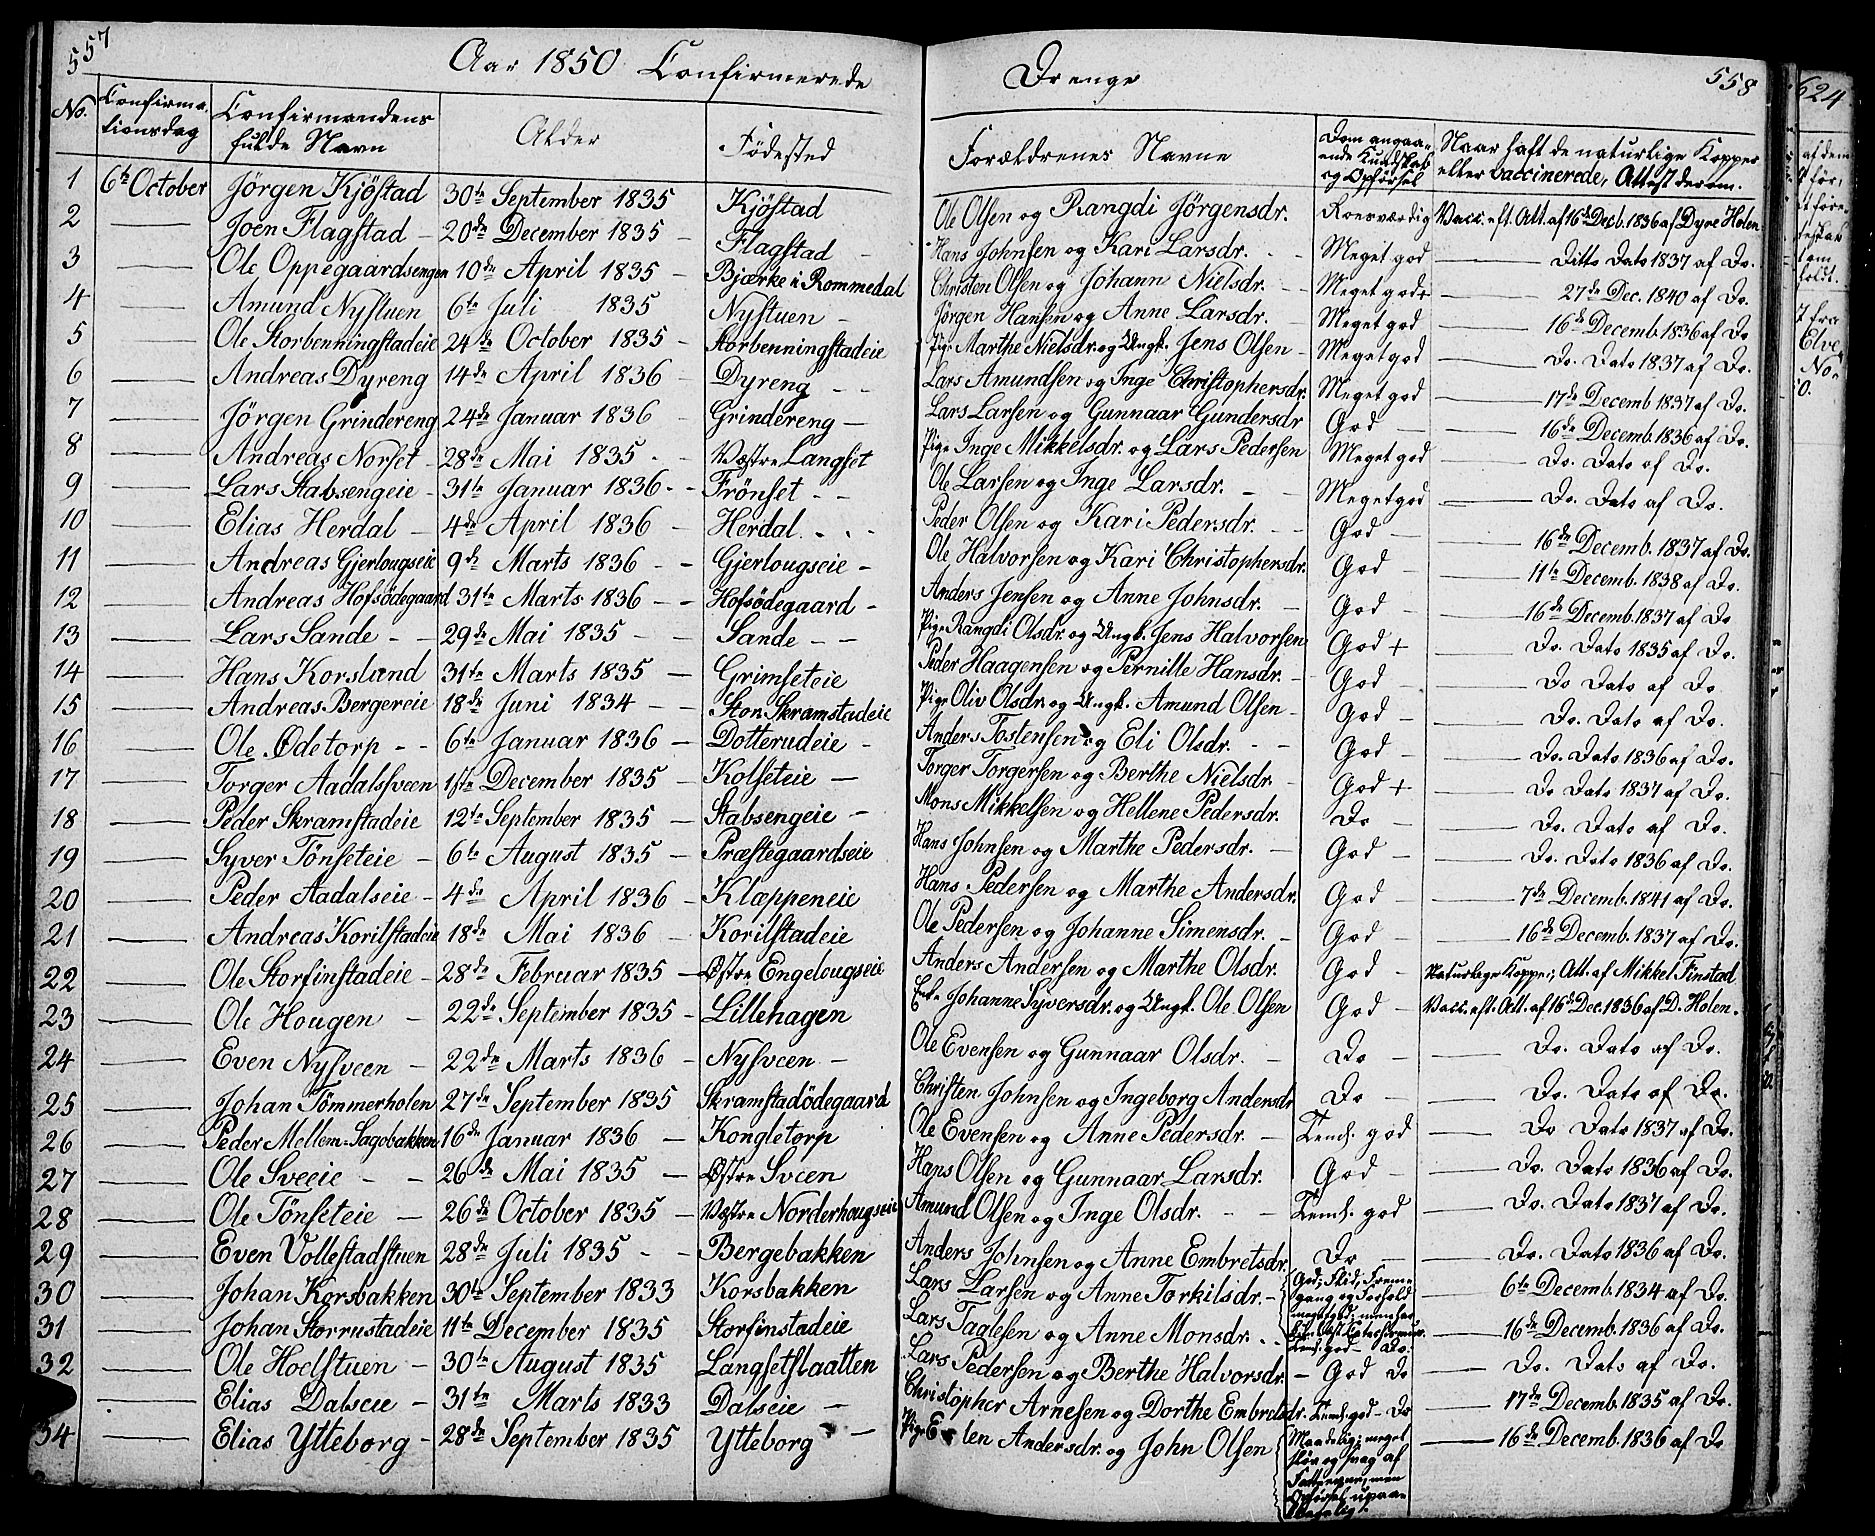 557
Aar 1850 Confirmerede Drenge
558
624
No. Confirmationsdag Confirmandens fulde Navn Alder Fødested Forældrenes Navne Dom angaaende Kundskab og Opførsel Naar haft de naturlige Kopper eller vaccinerede, Attest derom.
1 6te October Jörgen Kjöstad 30te September 1835 Kjöstad Ole Olsen og Rangdi Jörgensdr. Roesværdig Vacc. eft. Att. af 16de Decb. 1836 af Dyre Holen
2 — Joen Flagstad – 20de December 1835 – Flagstad – Hans Johnsen og Kari Larsdr. Meget god — Ditto Dato 1837 af Do.
3 — Ole Oppegaardsengen 10de April 1835 – Bjærke i Rommedal Christen Olsen og Johann Nielsdr. Meget god+ — 27de Dec. 1840 af Do.
4 — Amund Nystuen 6te Juli 1835 Nystuen – Jörgen Hansen og Anne Larsdr. Meget god — 16de Decemb. 1836 af Do
5 — Ole Storbenningstadeie 24de October 1835 – Storbenningstadeie Pige Marthe Nielsdr. og Ungk. Jens Olsen – Meget god — Do. Dato 1837 af Do.
6 — Andreas Dyreng 14de April 1836 – Dyreng – – Lars Amundsen og Inge Christophersdr. Meget god — 17de Decemb 1837 af Do.
7 — Jörgen Grindereng 24de Januar 1836 Grindereng – Lars Larsen og Gunnaar Gundersdr God – — 16de Decemb. 1836 af Do.
8 — Andreas Norset – 28de Mai 1835 – Vestre Langset Pige Inge Mikkelsdr. og Lars Pedersen Meget god — Do. Dato af Do.
9 — Lars Stabsengeie – 31te Januar 1836 – – Frönset – – Ole Larsen og Inge Larsdr. – Meget god — Do. Dato af Do.
10 — Elias Herdal – 4de April 1836 – Herdal – – Peder Olsen og Kari Pedersdr. – God – — 16de Decemb. 1837 af Do.
11 — Andreas Gjerlougseie 9de Marts 1836 – – Gjerlougseie – Ole Halvorsen og Kari Christophersdr. God – — 11te Decemb. 1838 af Do.
12 — Andreas Hofsödegaard 31te Marts 1836 – – Hofsödegaard – Anders Jensen og Anne Johnsdr. – God – — 16de Decemb. 1837 af Do
13 — Lars Sande – – 29de Mai 1835 – – Sande – – Pige Rangdi Olsdr. og Ungk. Jens Halvorsen God + — Do. Dato 1835 af Do.
14 — Hans Korslund 31te Marts 1835 – Grimseteie Peder Haagensen og Pernille Hansdr. – God – — Do Dato af Do
15 — Andreas Bergereie 18de Juni 1834 – – Stor Skramstadeie Pige Oliv Olsdr. og Ungk. Amund Olsen – God – — Do. Dato af Do.
16 — Ole Ödetorp – – 6te Januar 1836 – Dotterudeie – Anders Tostensen og Eli Olsdr. – – God – — Do. Dato 1836 af Do.
17 — Torger Aadalssveen 1ste December 1835 – Kolseteie – Torger Torgersen og Berthe Nielsdr. – God + — Do Dato 1837 af Do.
18 — Peder Skramstadeie 12te September 1835 – Stabsengeie – Mons Mikkelsen og Hellene Pedersdr. Do – — Do. Dato af Do.
19 — Syver Tönseteie – 6te August 1835 – Præstegaardseie Hans Johnsen og Marthe Pedersdr. – God – — Do. Dato 1836 af Do.
20 — Peder Aadalseie – 4de April 1836 – Klæppeneie Hans Pedersen og Marthe Andersdr. God – — 7de Decemb. 1841 af Do.
21 — Andreas Korilstadeie 18de Mai 1836 – Korilstadeie Ole Pedersen og Johanne Simensdr. – God – — 16de Decemb. 1837 af Do.
22 — Ole Storfinstadeie – 28de Februar 1835 – Østre Engelougseie Anders Andersen og Marthe Olsdr. God – Naturlige Kopper, Att. af Mikkel Finstad
23 — Ole Hougen – 22de September 1835 – Lillehagen Enke Johanne Syversdr. og Ungk. Ole Olsen God – Vacc. eft. Att. af 16de Dec. 1836 af D. Holen.
24 — Even Nysveen – 22de Marts 1836 – Nysveen – Ole Evensen og Gunnaar Olsdr. – Do – — Do. Dato af Do.
25 — Johan Tömmerholen 27de September 1835 Skramstadödegaard Christen Johnsen og Ingeborg Andersdr Do – — Do. Dato af Do.
26 — Peder Mellem-Sagobakken 16de Januar 1836 – Kongletorp Ole Evensen og Anne Pedersdr. – Temel. god — Do Dato 1837 af Do.
27 — Ole Sveeie – – 26de Mai 1835 – Østre Sveen Hans Olsen og Gunnaar Larsdr. God – — Do. Dato 1836 af Do.
28 — Ole Tönseteie – 26de October 1835 – Vestre Norderhougseie Amund Olsen og Inge Olsdr. – – Temel. god — Do. Dato 1837 af Do.
29 — Even Vollestadstuen 28de Juli 1835 – – Bergebakken Anders Johnsen og Anne Embretsdr. Do – — Do. Dato 1836 af Do.
30 — Johan Korsbakken 30te September 1833 Korsbakken Lars Larsen og Anne Torkilsdr. – God; Flid, Fremgang og Forhold — 6te Decemb. 1834 af Do.
31 — Johan Storrustadeie 11te December 1835 Storfinstadeie Lars Taglesen og Anne Monsdr. – Temel. god – Do. — 16de Decemb. 1836 af Do.
32 — Ole Hoelstuen – 30te August 1835 Langsetslaatten Lars Pedersen og Berthe Halvorsdr. – God Do — Do. Dato af Do.
Elias Dalseie – 31te Marts 1833 Dalseie – Christopher Arnesen og Dorthe Embretsdr. Temel. god – Do — 17de Decemb. 1835 af Do.
34 — Elias Ytteborg – 28de September 1835 Ytteborg – Pige len Andersdr. og John Olsen Maadelig; meget sløv og svag af Fatteevne, men Opførsel upaaklagelig. — 16de Decemb. 1836 af Do